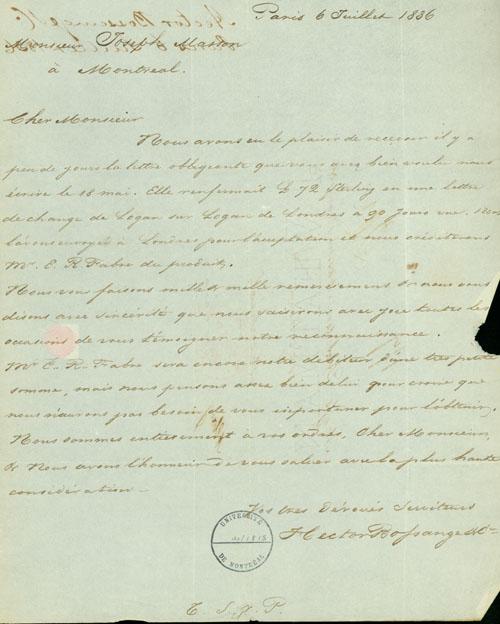 Paris 6 Juillet 1836
Monsieur Joseph Masson
à Montreal.
Cher Monsieur
Nous avons eu le plaisir de recevoir il y a
peu de jours la lettre obligeante que vous avez bien voulu nous
écrire le 18 mai. Elle renfermait £ 72 Sterling en une lettre
de change de Logan sur Logan de Londres à 90 Jours vue. Nous
l'avons envoyée à Londres pour l'acceptation et nous créditerons
Mr. E. R. Fabre du produit.
Nous vous faisons mille & mille remerciements & nous vous
disons avec sincérité que nous saisirons avec joie toutes les
occasions de vous témoigner notre reconnaissance.
Mr E. R. Fabre sera encore notre débiteur d'une très petite
somme, mais nous pensons assez bien de lui pour croire que
nous n'aurons pas besoin de vous importuner pour l'obtenir.
Nous sommes entièrement à vos ordres, Cher Monsieur,
& Nous avons l'honneur de vous saluer avec la plus haute
considération
Vos très Dévoués Serviteurs
Hector Bossange & Cie
UNIVERSITÉ
DE MONTRÉAL
T. S. V. P.